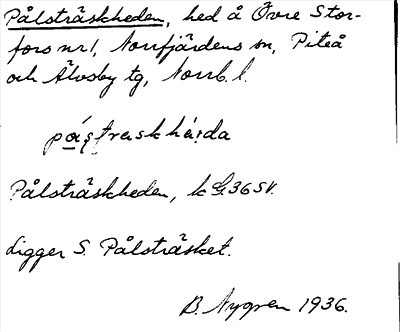 Pålsträskheden, hed å Övre Stor-
fors nr1, Norrfjärdens sn, Piteå
och Älvsby tg, Norrb. l.
Pålsträskheden, k 36 SV.
Ligger S. Pålsträsket.
B. Nygren 1936.